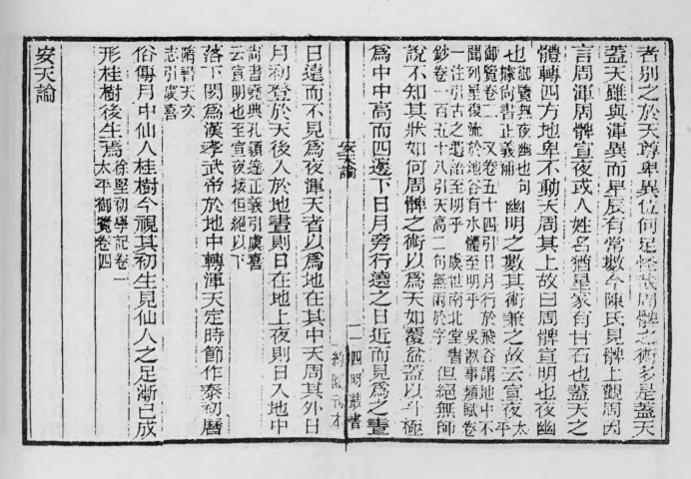 者別之於天尊卑異位何足怪哉周髀之術多是蓋天
蓋天雖與渾異而星辰有常數今陳氏見髀上觀周因
言周渾周髀宣夜或人姓名猶星家有甘石也蓋天之
體轉四方地卑不動天周其上故曰周髀宣明也夜幽
也御覽無夜幽也句據尚書正義補幽明之數其術兼之故云宣夜太平
御覽卷二 又卷五十四引日月行於飛谷謂地中不
聞列星復流於地谷有水體至明乎 吳淑事類賦卷
一注引古之遺語至明乎 虞世南北堂書
鈔卷一百五十八引天高二句無兩於字 但絕無師
說不知其狀如何周髀之術以爲天如覆盆蓋以斗極
爲中中高而四邊下日月旁行遶之日近而見爲之晝
安天論
一一四明叢書
約園刊本
日遠而不見爲夜渾天者以爲地在其中天周其外日
月初登於天後入於地晝則日在地上夜則日入地中
尚書堯典孔穎達正義引虞喜
云宣明也至宣夜按但絕以下
落下閎爲漢孝武帝於地中轉渾天定時節作泰初曆
隋書天文
志引虞喜
俗傳月中仙人桂樹今視其初生見仙人之足漸已成
形桂樹後生焉徐堅初學記卷一
太平御覽卷四
安天論